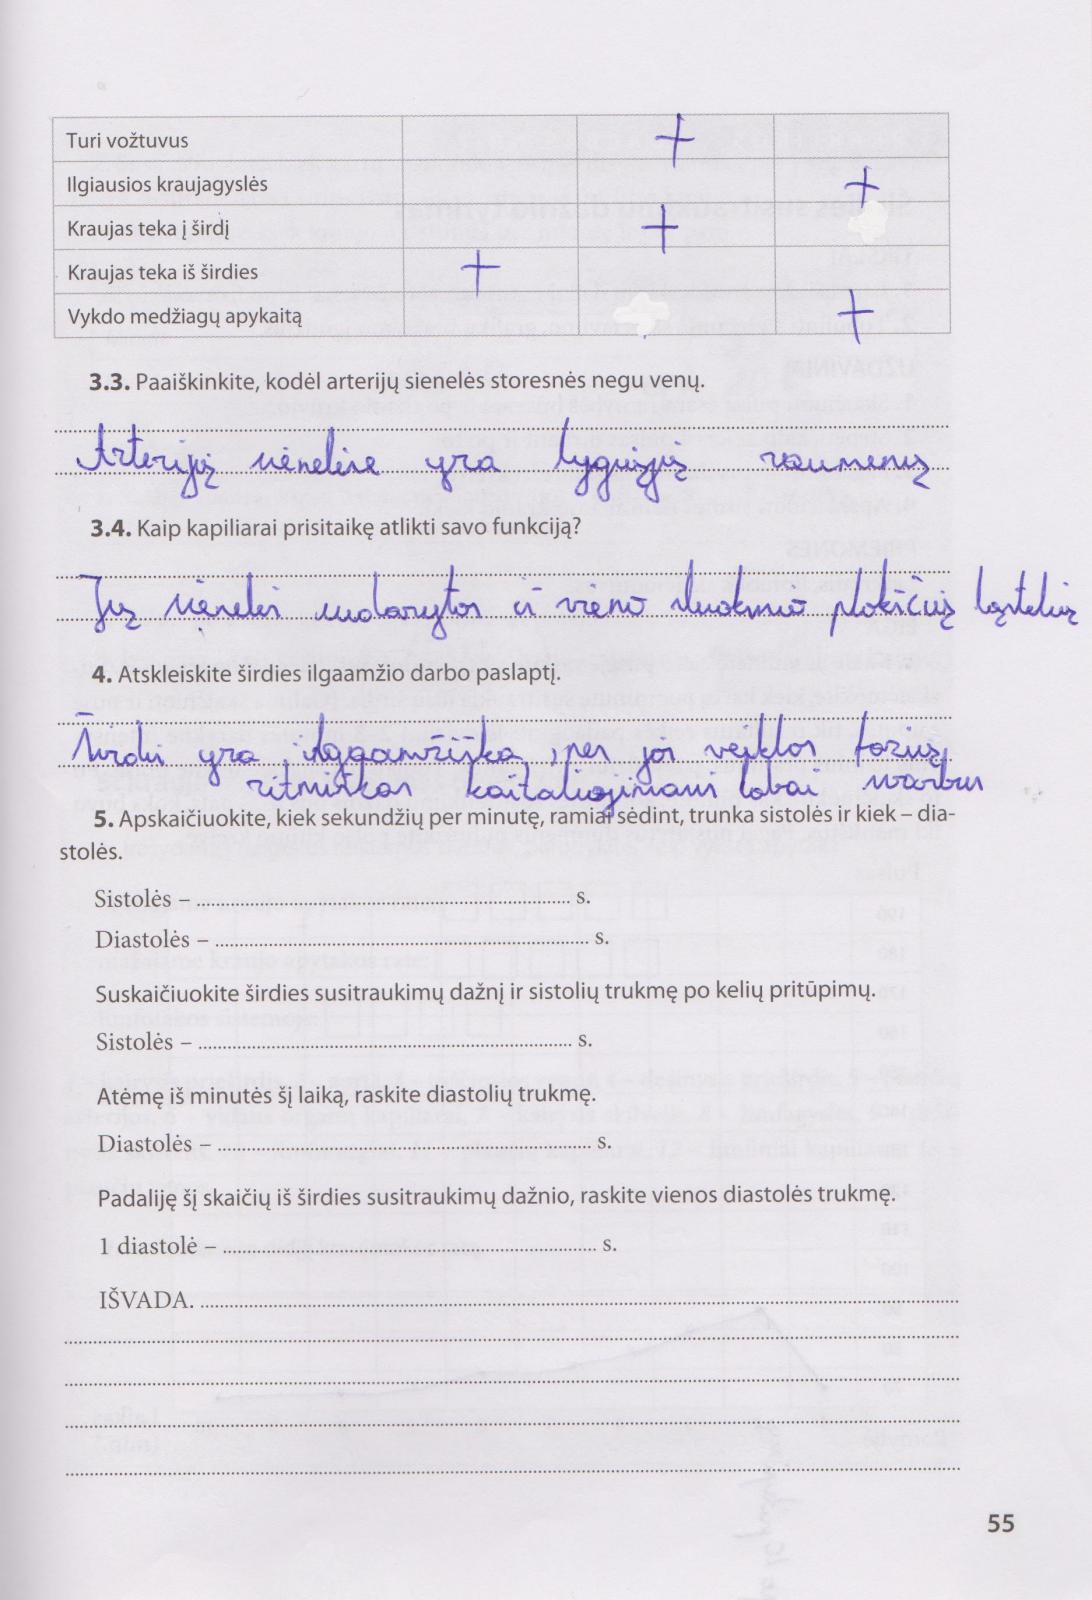 Turi vožtuvus +
Ilgiausios kraujagyslės +
Kraujas teka į širdį +
Kraujas teka iš širdies +
Vykdo medžiagų apykaitą +
3.3. Paaiškinkite, kodėl arterijų sienelės storesnės negu venų.
Arterijų sienelėse yra lygiųjų raumenų
3.4. Kaip kapiliarai prisitaikę atlikti savo funkciją?
Jų sienelės sudarytos iš vieno sluoksnio plokščių ląstelių
4. Atskleiskite širdies ilgaamžio darbo paslaptį.
Širdis yra ilgaamžiška, nes jos veiklos fazių
ritmiškas kaitaliojimasis labai svarbus
5. Apskaičiuokite, kiek sekundžių per minutę, ramiai sėdint, trunka sistolės ir kiek – dia-
stolės.
Sistolės – s.
Diastolės – s.
Suskaičiuokite širdies susitraukimų dažnį ir sistolių trukmę po kelių pritūpimų.
Sistolės – s.
Atėmę iš minutės šį laiką, raskite diastolių trukmę.
Diastolės – s.
Padaliję šį skaičių iš širdies susitraukimų dažnio, raskite vienos diastolės trukmę.
1 diastolė – s.
IŠVADA.
55